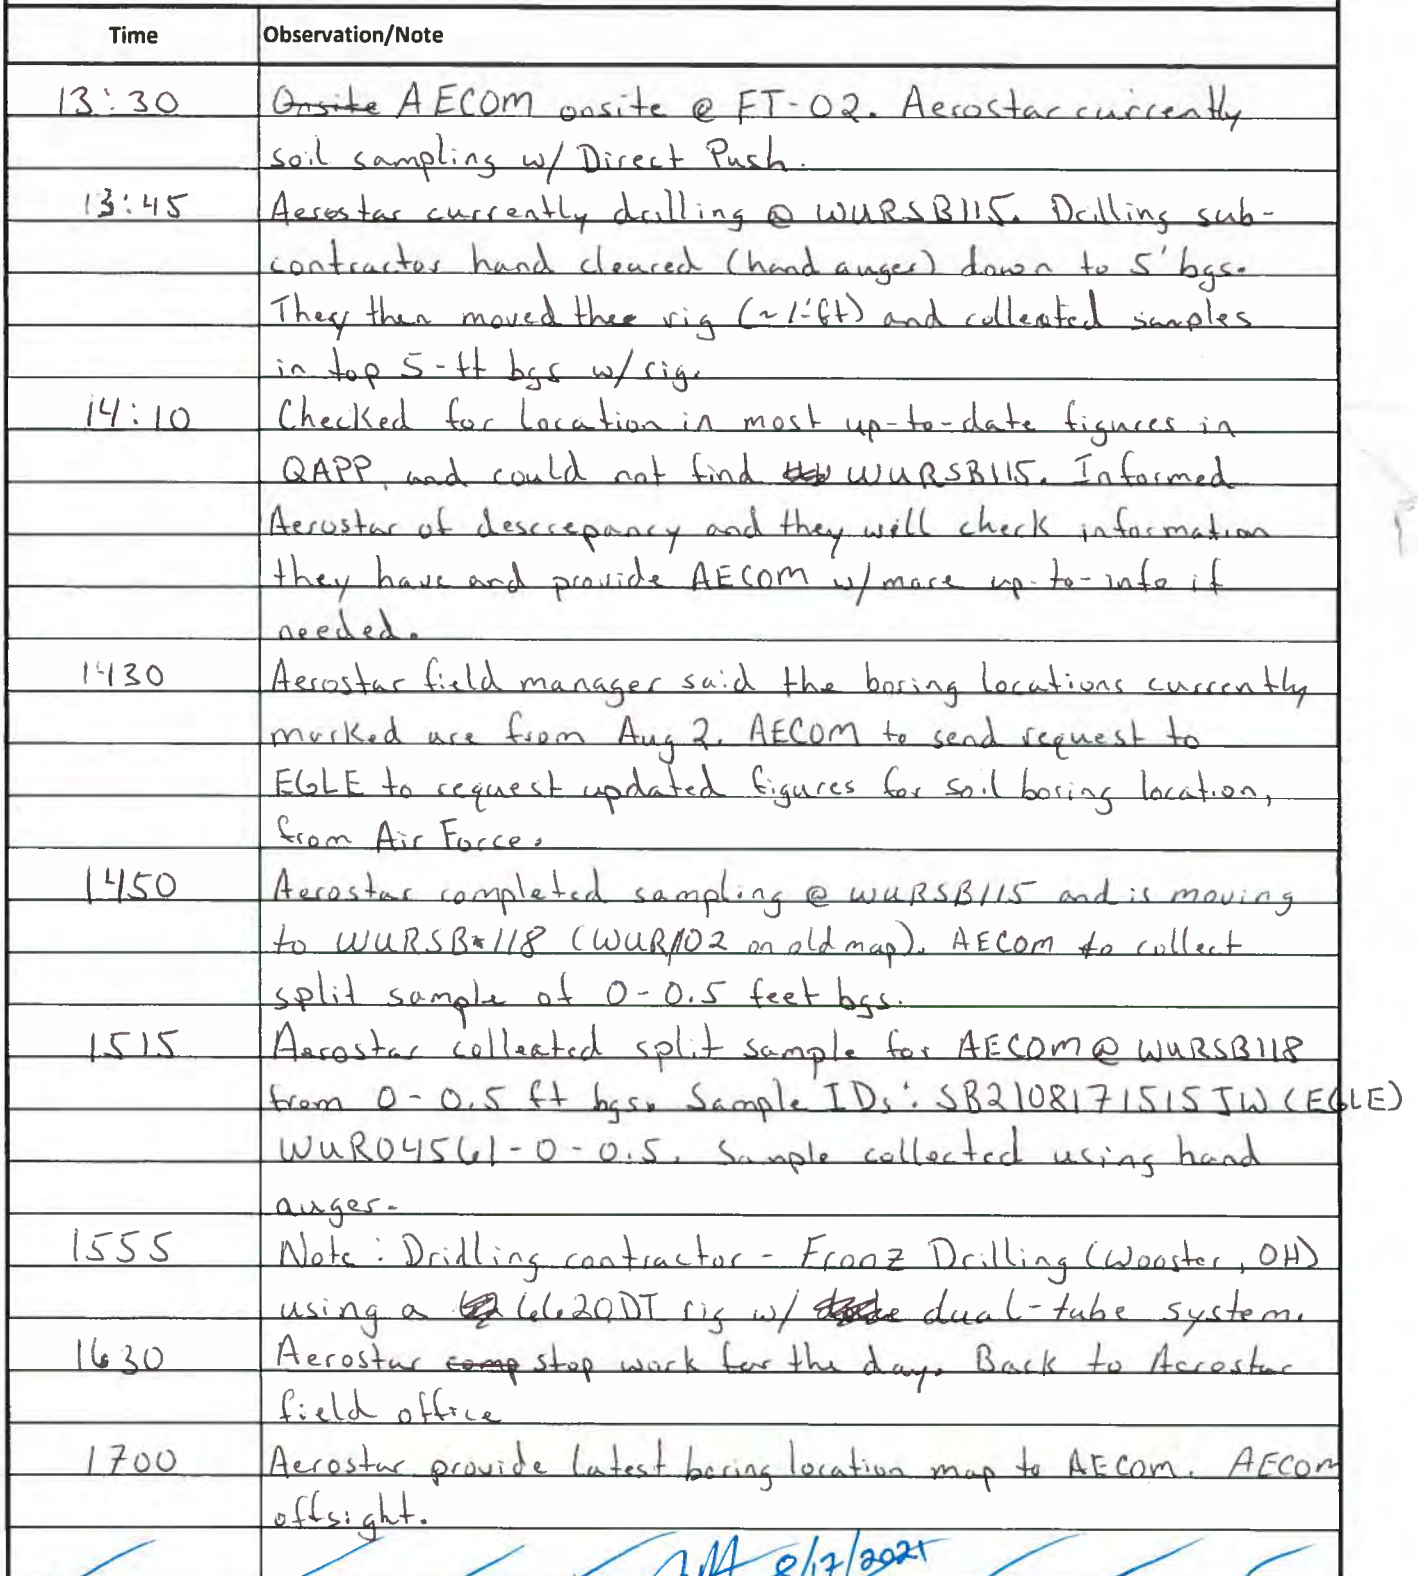 Time Observation/Note
13:30 Onsite AECOM onsite @ FT-02. Aerostar currently
soil sampling w/ Direct Push.
13:45 Aerostar currently drilling @ WURSB115. Drilling sub-
contractor hand cleared (hand auger) down to 5' bgs.
They then moved thee rig (~1-ft) and collected samples
in top 5-ft bgs w/ rig.
14:10 Checked for location in most up-to-date figures in
QAPP, and could not find WURSB115. Informed
Aerostar of descrepancy and they will check information
they have and provide AECOM w/ more up-to-info if
needed.
1430 Aerostar field manager said the boring locations currently
marked are from Aug 2. AECOM to send request to
EGLE to request updated figures for soil boring location,
from Air Force.
1450 Aerostar completed sampling @ WURSB115 and is moving
to WURSB*118 (WUR102 on old map). AECOM to collect
split sample of 0-0.5 feet bgs.
1515 Aerostar collected split sample for AECOM @ WURSB118
from 0-0.5 ft bgs. Sample IDs: SB2108171515JW (EGLE)
WUR04561-0-0.5. Sample collected using hand
auger.
1555 Note: Dridling contractor - Fronz Drilling (Wooster, OH)
using a 6620DT rig w/ dual-tube system.
1630 Aerostar comp stop work for the day. Back to Aerostar
field office
1700 Aerostar provide latest boring location map to AECOM. AECOM
offsight.
8/17/2021